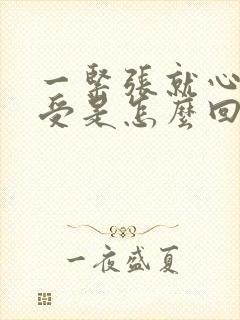 一緊張就心
受是怎麼回
一夜盛夏